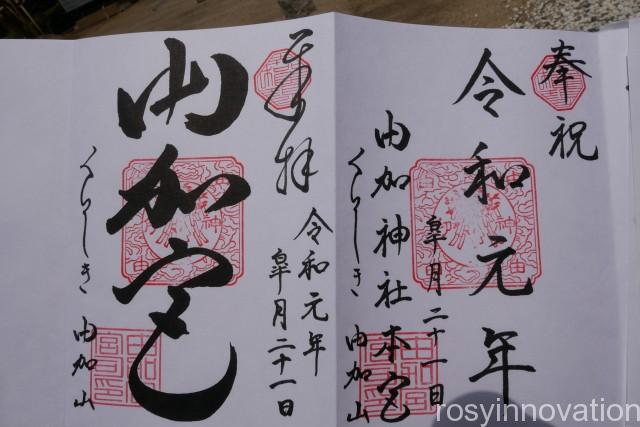 奉祝
令和元年
皐月二十一日
由加神社本宮
くらしき 由加山
奉拝
令和元年
皐月二十一日
由加宮
くらしき 由加山
rosyinnovation